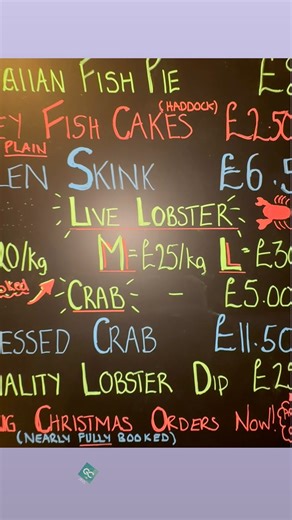 AIIAN FISH PIE £8
EY FISH CAKES (HADDOCK) £2.50
PLAIN
LEN SKINK £6.5
LIVE LOBSTER
20/kg M=£25/kg L=£30
CRAB - £5.00
ESSED CRAB £11.50
ALITY LOBSTER DIP £2
NG CHRISTMAS ORDERS NOW!
(NEARLY FULLY BOOKED)